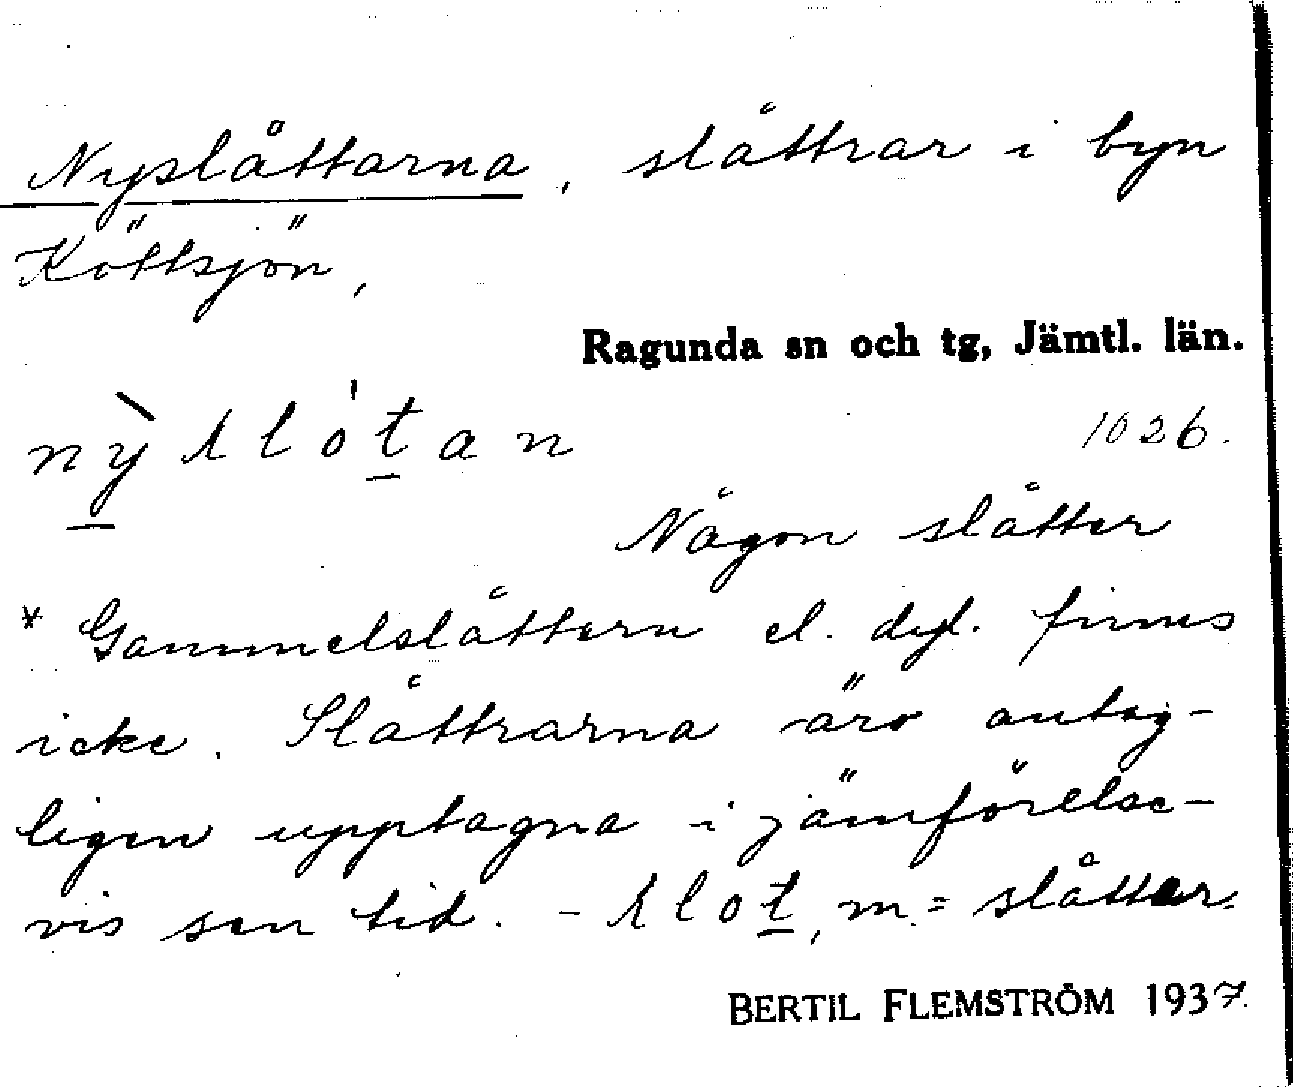 Nyslåttarna, slåttrar i byn
Köttsjön,
Ragunda sn och tg, Jämtl. län.
1026.
Någon slåtter
* Gammelslåttern el. dyl. finns
icke. Slåttrarna äro antag-
ligen upptagna i jämförelse-
vis sen tid. – slot, m. = slåtter.
BERTIL FLEMSTRÖM 1937.